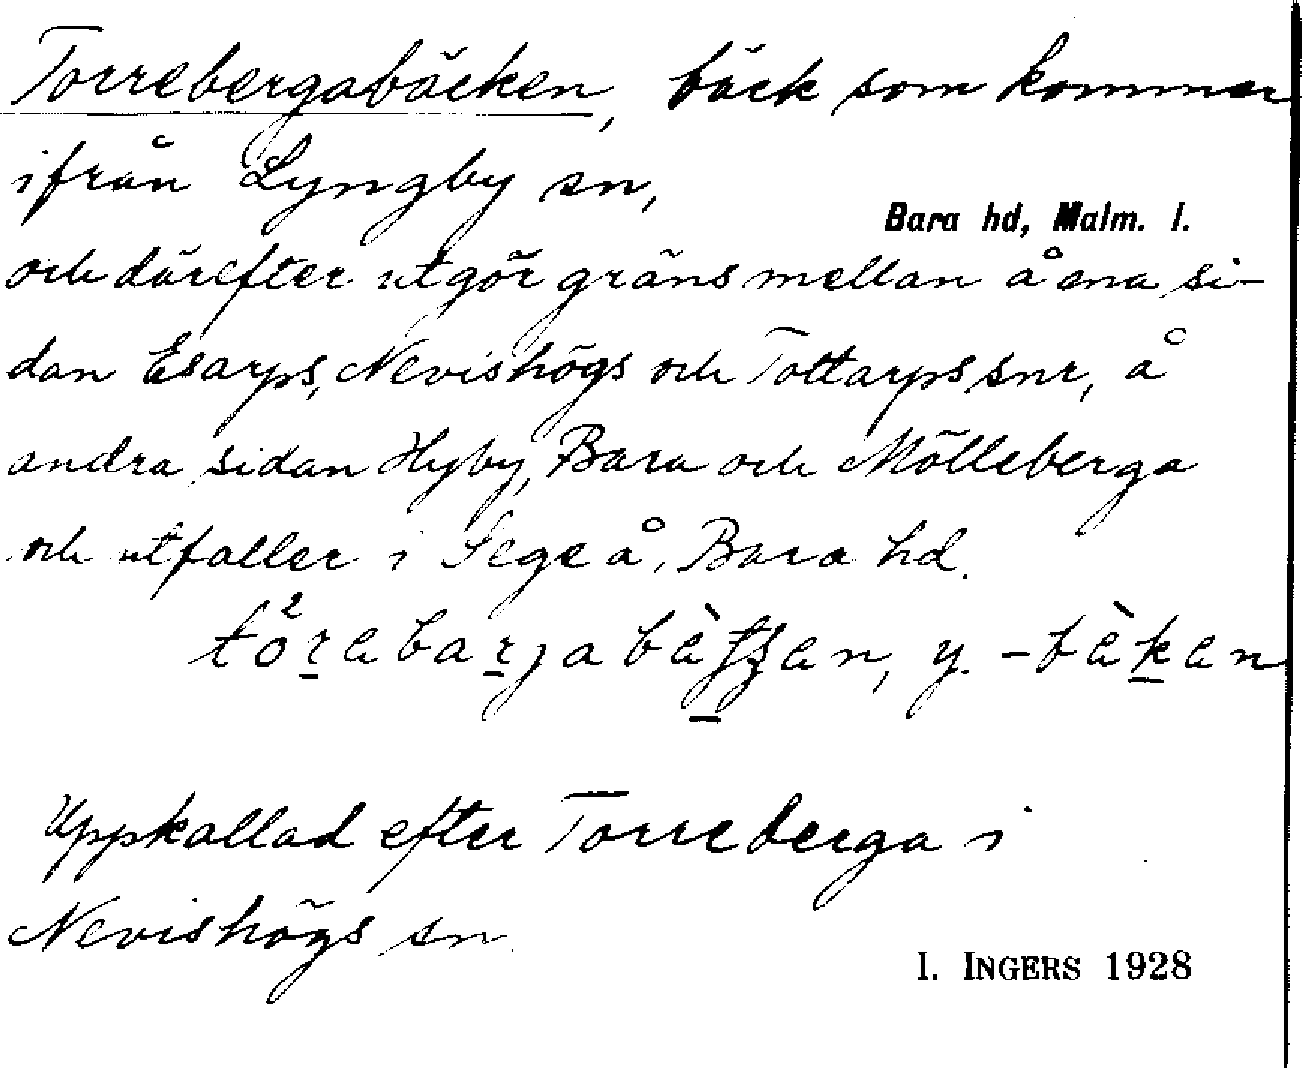 Torrebergabäcken, bäck som kommer
ifrån Lyngby sn,
Bara hd, Malm. l.
och därefter utgör gräns mellan å ena si-
dan Esarps, Nevishögs och Tottarps snr, å
andra sidan Hyby, Bara och Mölleberga
och utfaller i Sege å, Bara hd.
y.
Uppkallad efter Torreberga i
Nevishögs sn.
I. INGERS 1928